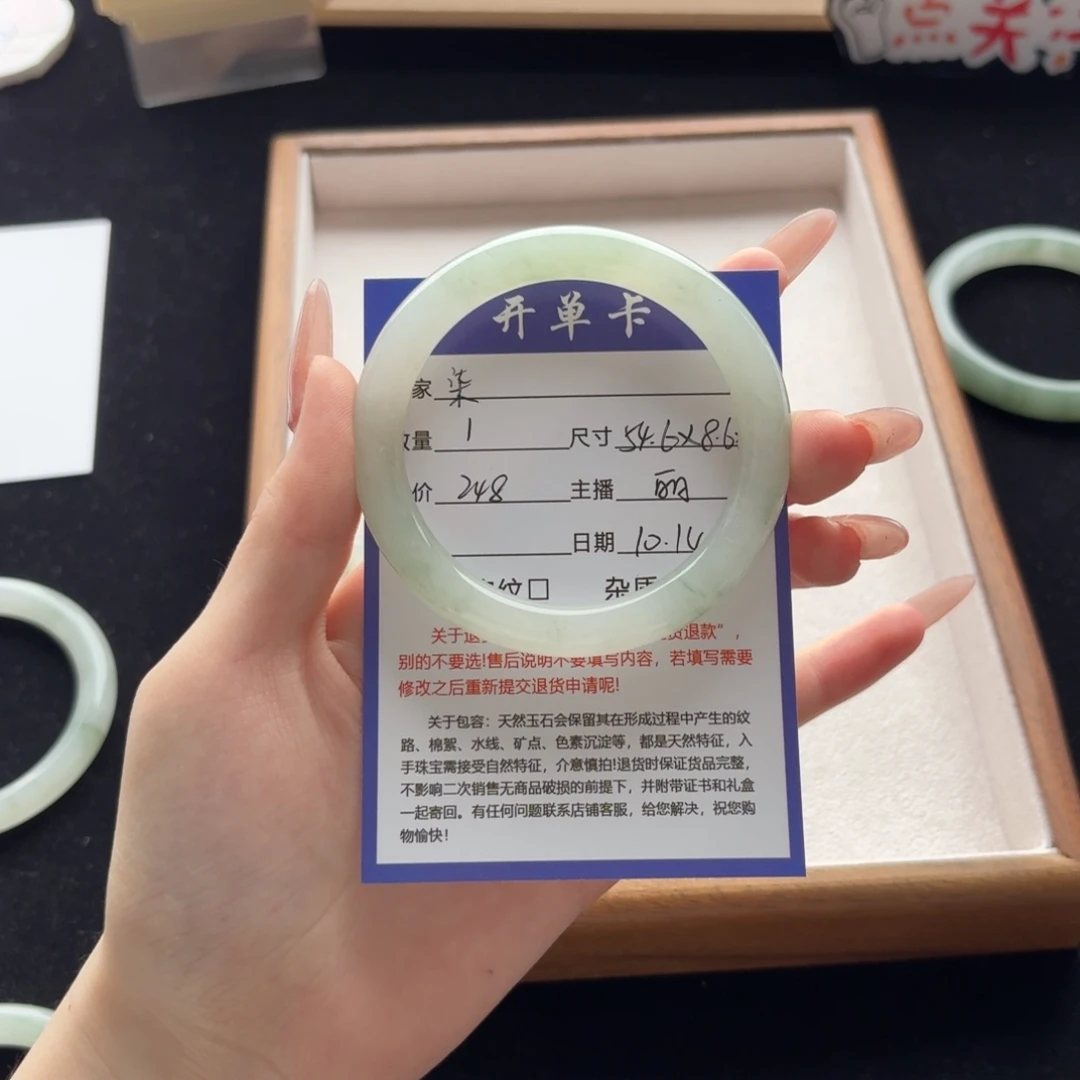 点关
开单卡
家 柒
量 1 尺寸 54.6×8.6
价 248 主播 丽
日期 10.14
纹□ 杂质
关于退 货退款”，
别的不要选!售后说明不要填写内容，若填写需要
修改之后重新提交退货申请呢!
关于包容：天然玉石会保留其在形成过程中产生的纹
路、棉絮、水线、矿点、色素沉淀等，都是天然特征，入
手珠宝需接受自然特征，介意慎拍!退货时保证货品完整，
不影响二次销售无商品破损的前提下，并附带证书和礼盒
一起寄回。有任何问题联系店铺客服，给您解决，祝您购
物愉快!